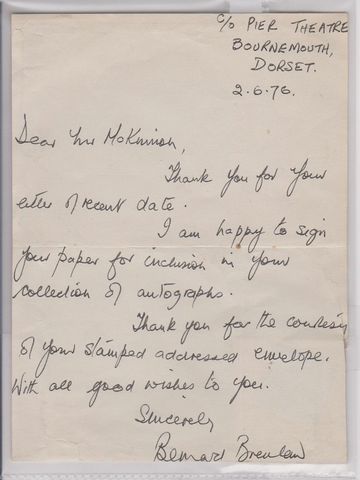 c/o PIER THEATRE
BOURNEMOUTH,
DORSET.
2.6.76.
Dear Mr McKinnon,
Thank you for your
letter of recent date.
I am happy to sign
your paper for inclusion in your
collection of autographs.
Thank you for the courtesy
of your stamped addressed envelope.
With all good wishes to you.
Sincerely
Bernard